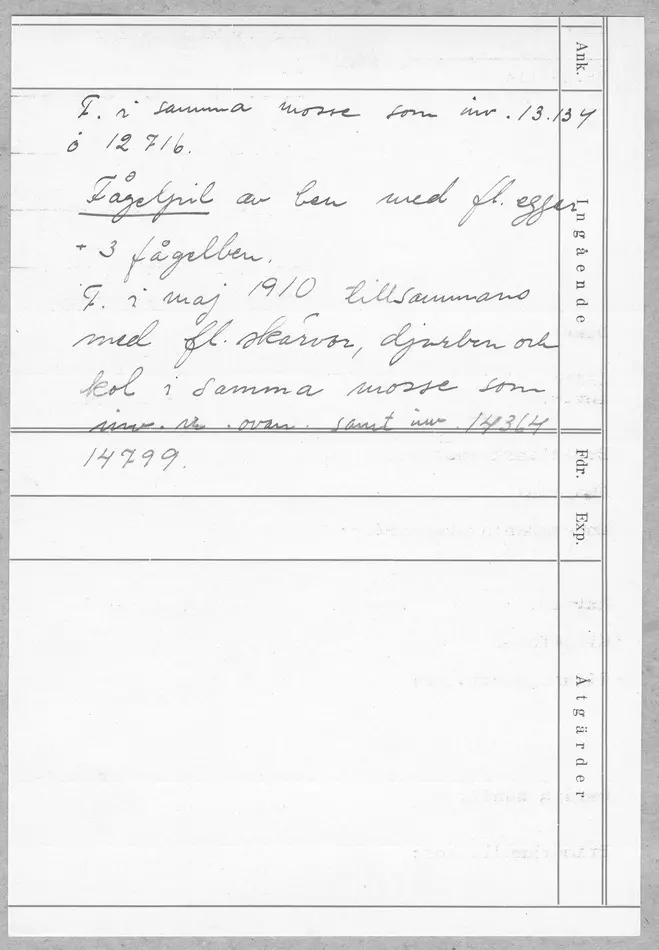 Ank.
F. i samma mosse som inv. 13.134
o 12716.
Fågelpil av ben med fl. eggar
+ 3 fågelben.
Ingående
F. i maj 1910 tillsammans
med fl. skärvor, djurben och
kol i samma mosse som
inv. nr. ovan samt inv. 14364
14799.
Fdr.
Exp.
Åtgärder